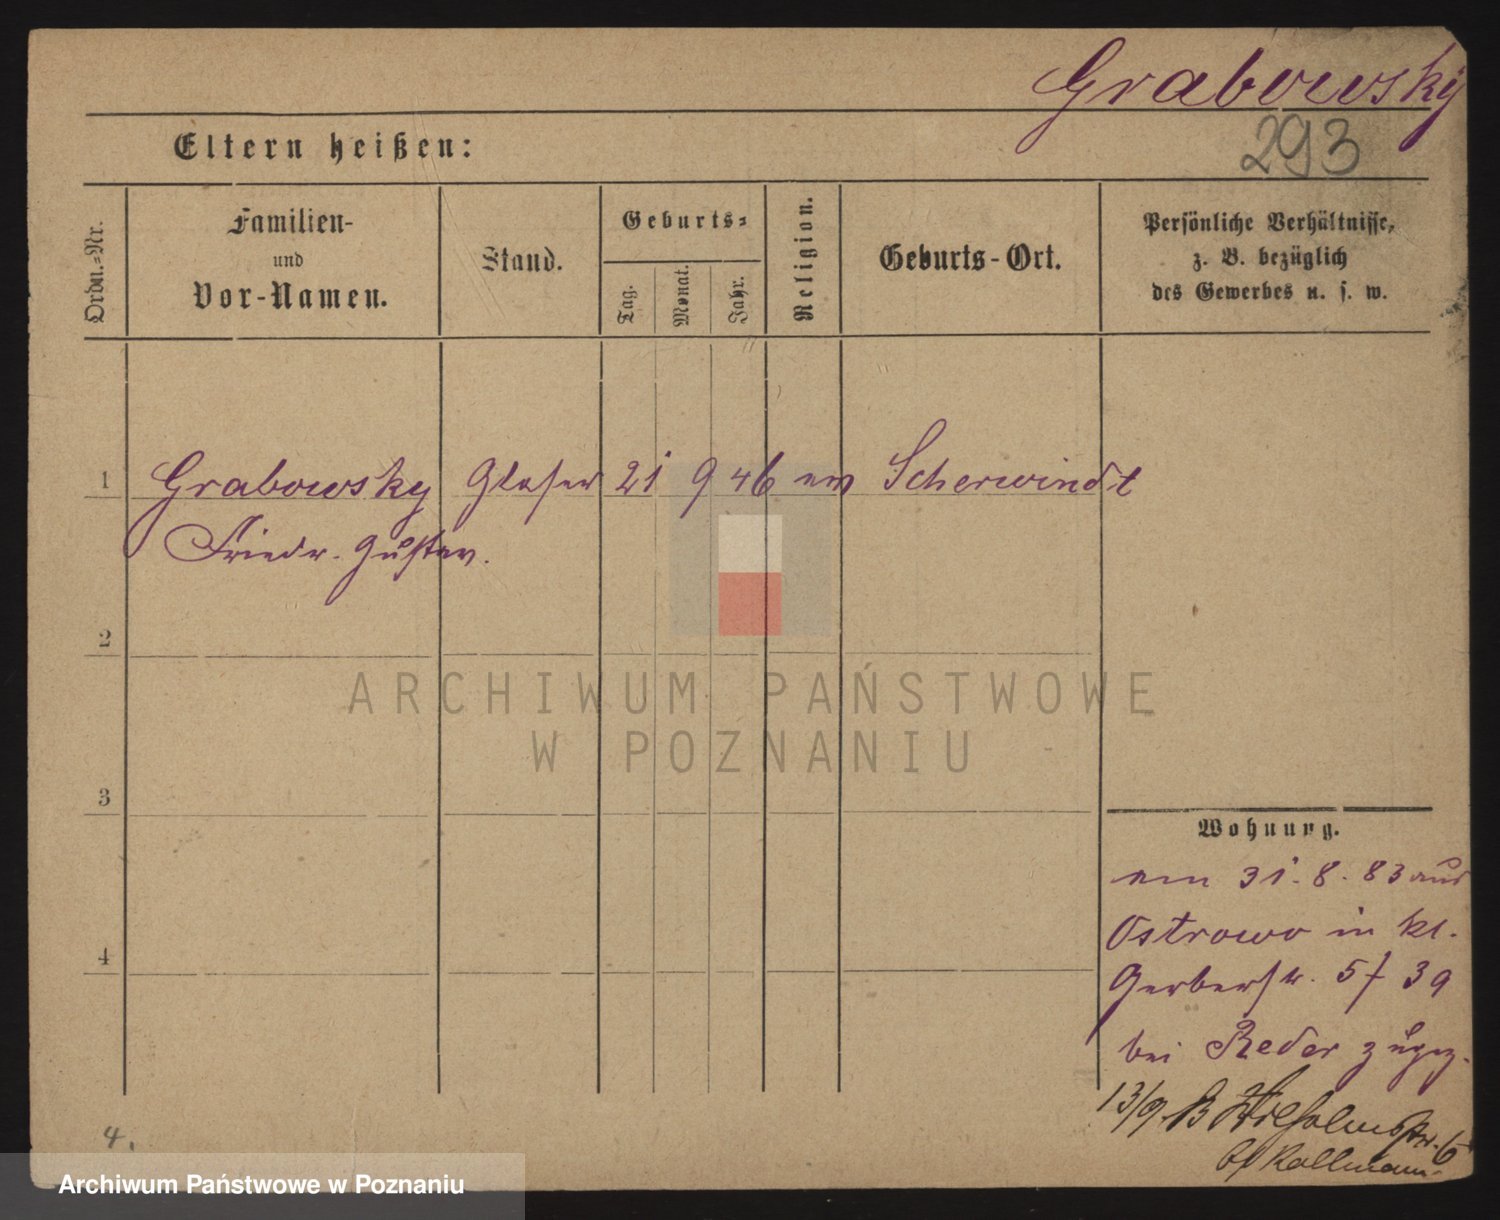 Grabowsky
293
Eltern heißen:
Ordn.-Nr.
Familien-
und
Vor-Namen.
Stand.
Geburts-
Tag.
Monat.
Jahr.
Religion.
Geburts-Ort.
Persönliche Verhältnisse,
z. B. bezüglich
des Gewerbes u. s. w.
1 Grabowsky Glaser 21 9 46 ev Scherwindt
Friedr. Gustav.
2
3
4
ARCHIWUM PAŃSTWOWE
W POZNANIU
Wohnung.
am 31. 8. 83 aus
Ostrowo in kl.
Gerberstr. 5 f 39
bei Reder zugez.
13/9. Wilhelmstr. 6
bei Kallmann
4.
Archiwum Państwowe w Poznaniu